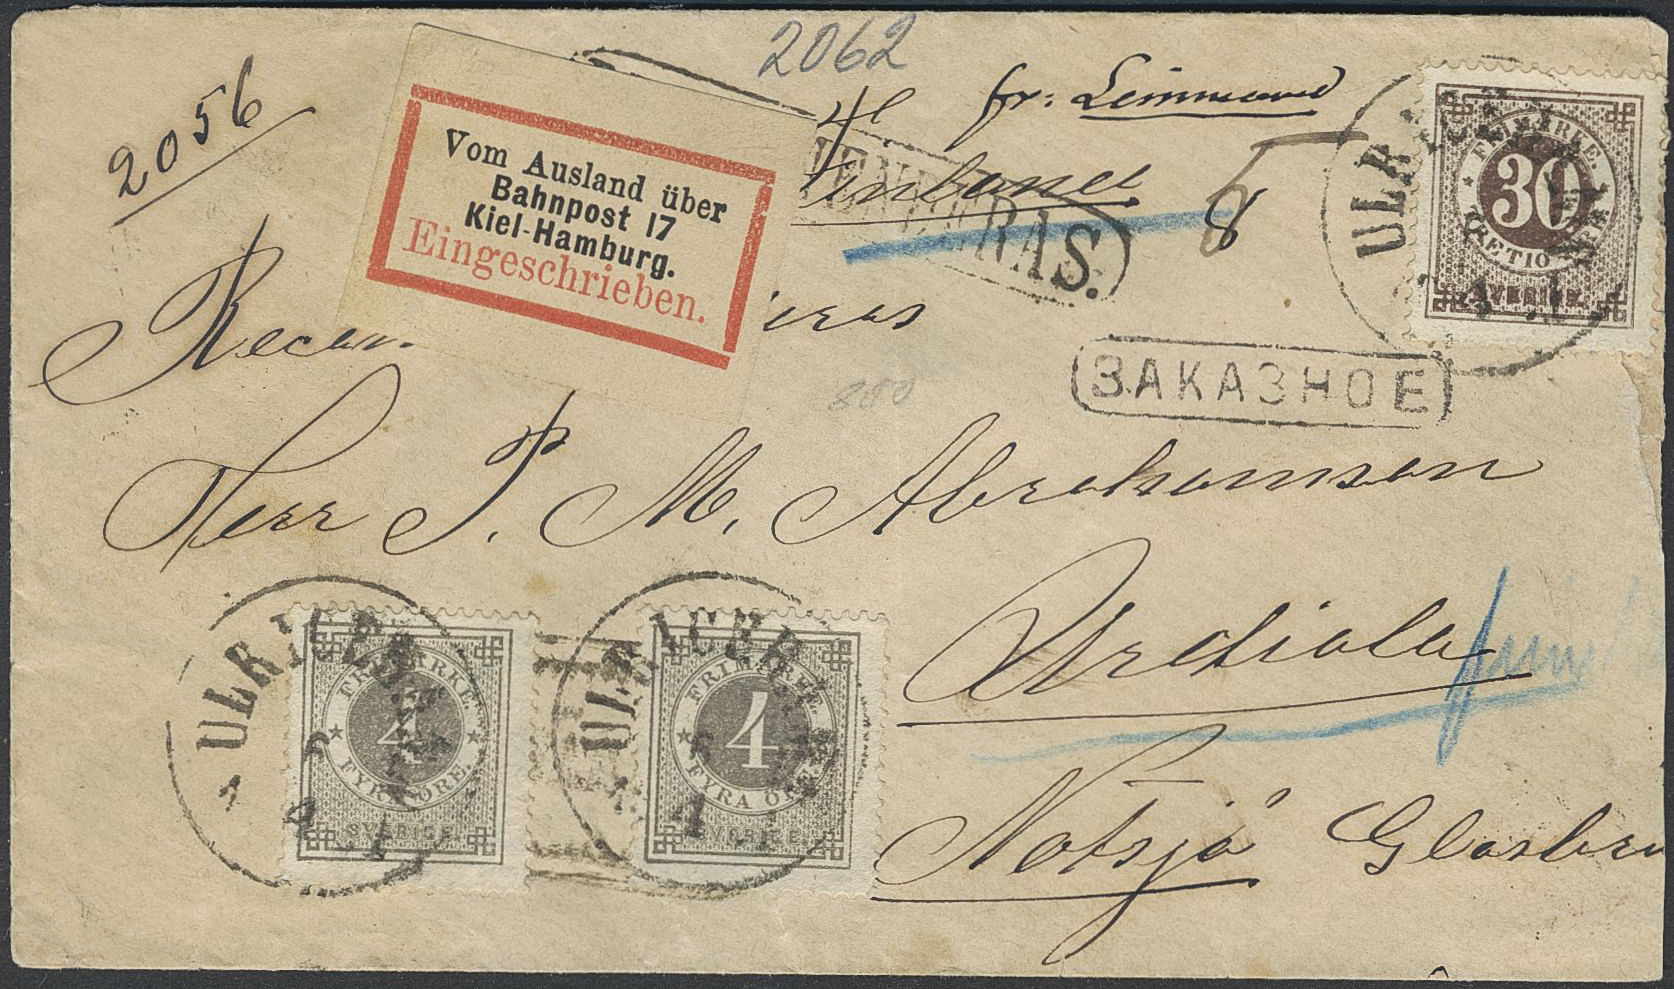 2062
2056
fr:
Vom Ausland über
Bahnpost 17
Kiel-Hamburg.
Eingeschrieben.
8
ULRICEH
FRIMÄRKE.
30
TRETIO ÖRE
SVERIGE.
ЗАКАЗНОЕ
Herr P. M. Abrahamson
Urdiala
Notsjö Glasbru
ULRICEH
FRIMÄRKE.
4
FYRA ÖRE.
SVERIGE.
ULRICEH
FRIMÄRKE.
4
FYRA ÖRE.
SVERIGE.